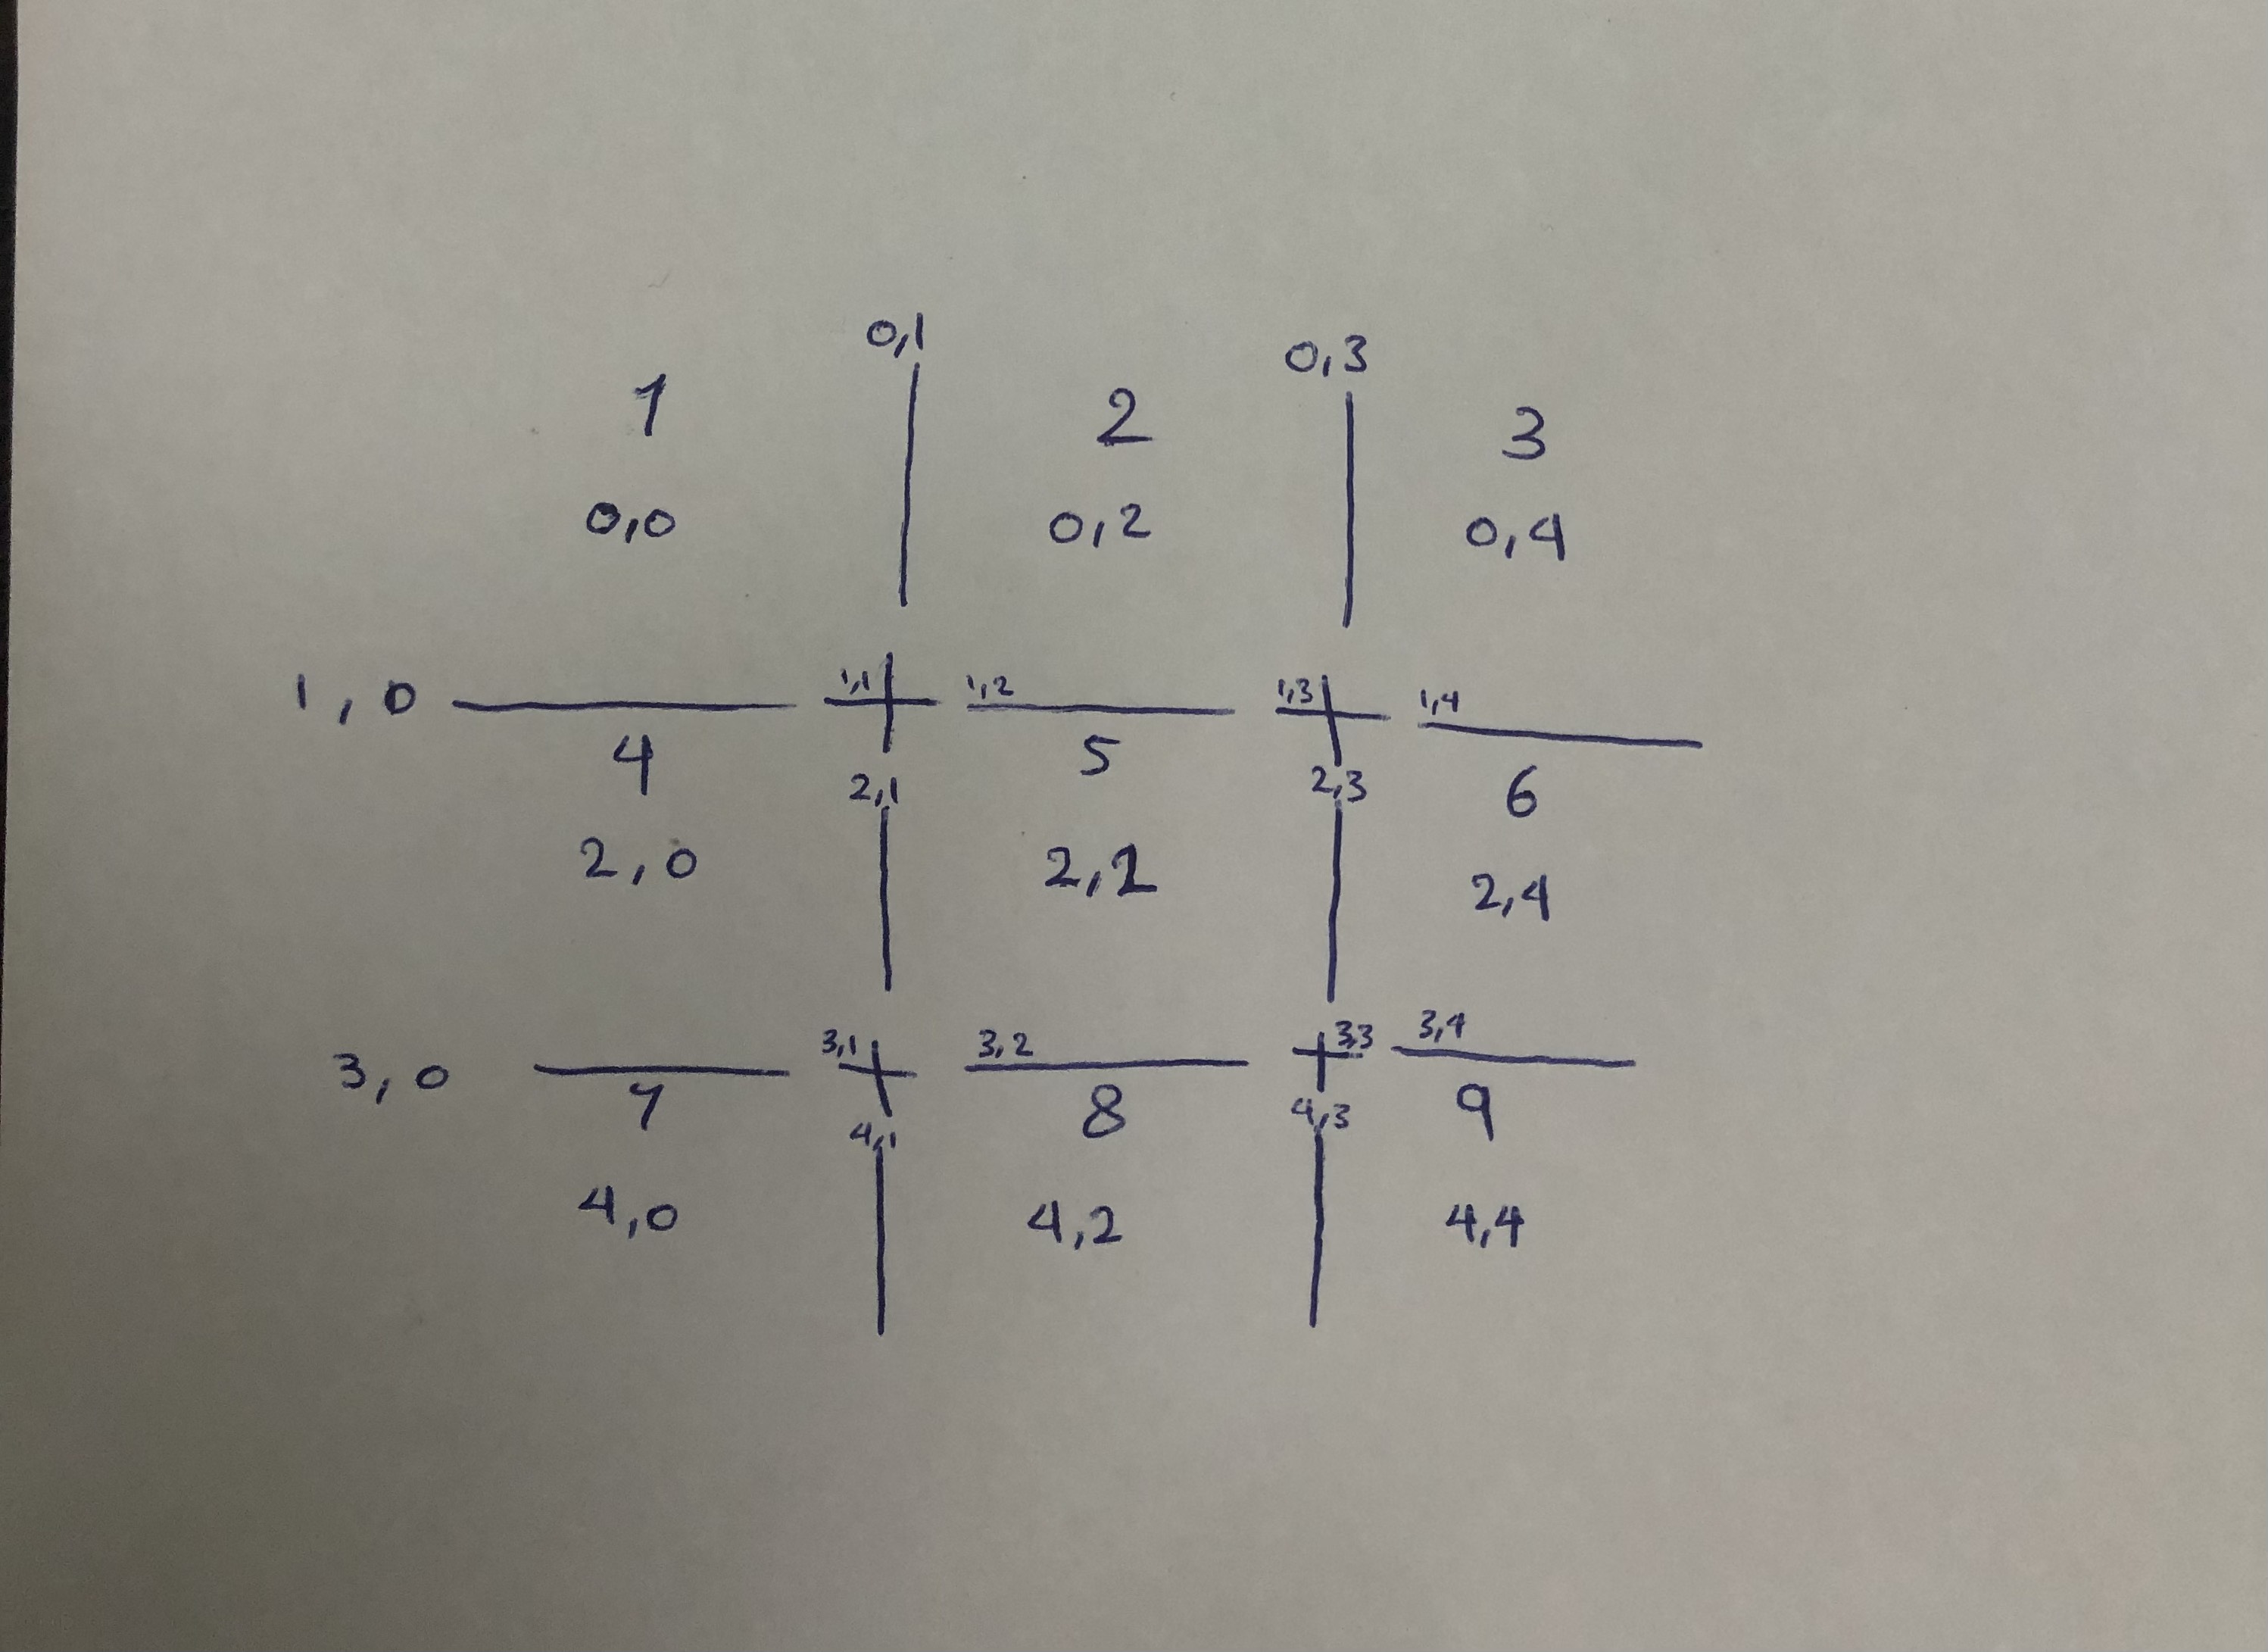 0,1 0,3
1 2 3
0,0 0,2 0,4
1,0 1,1 1,2 1,3 1,4
4 5 6
2,1 2,3
2,0 2,2 2,4
3,0 3,1 3,2 3,3 3,4
7 8 9
4,1 4,3
4,0 4,2 4,4